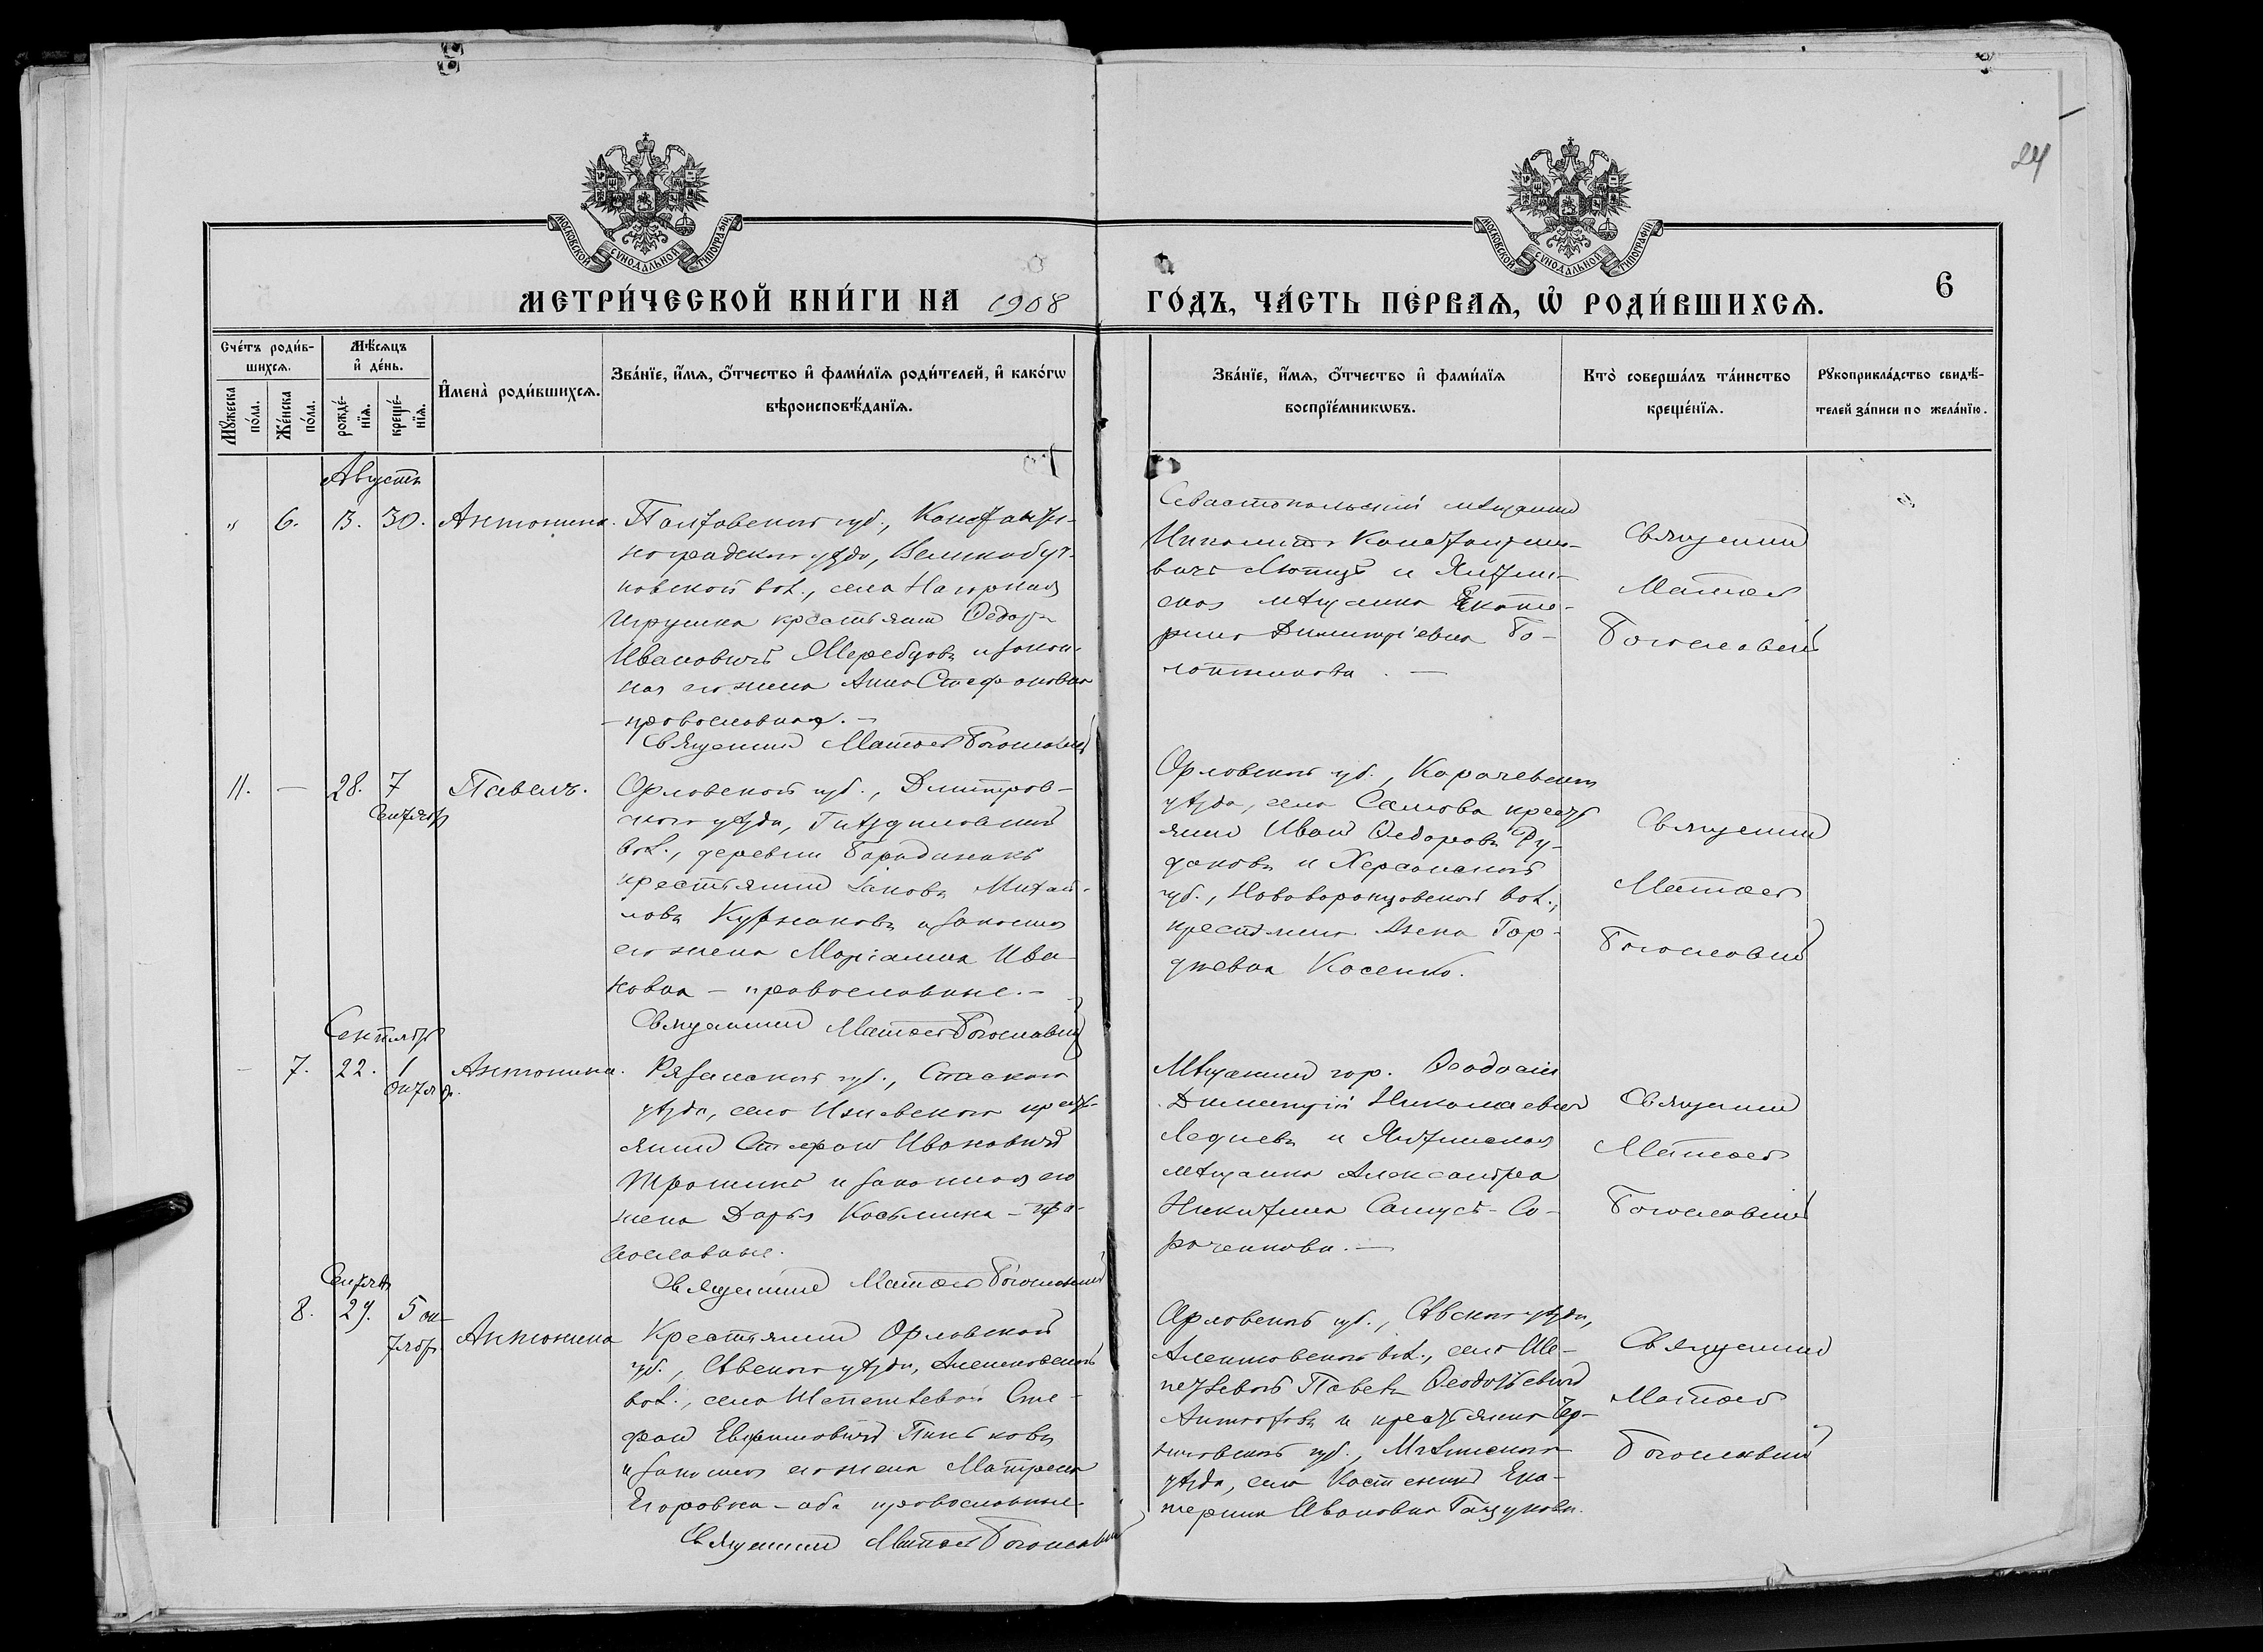 24
МОСКОВСКОЙ СУНОДАЛЬНОЙ ТИПОГРАФІИ
МОСКОВСКОЙ СУНОДАЛЬНОЙ ТИПОГРАФІИ
МЕТРИ́ЧЕСКОЙ КНИ́ГИ НА 1908
ГО́ДЪ, ЧА́СТЬ ПЕ́РВАѦ, Ѽ РОДИ́ВШИХСѦ.
6
Сче́тъ роди́в-
шихсѧ.
Мꙋ́жеска
по́ла.
Же́нска
по́ла.
Мѣ́сѧцъ
и҆ де́нь.
рожде́-
нїѧ.
креще́-
нїѧ.
И҆мена̀ роди́вшихсѧ.
Зва́нїе, и҆́мѧ, ѻ҆́тчество и҆ фами́лїѧ роди́телей, и҆ како́гѡ
вѣроисповѣ́данїѧ.
Зва́нїе, и҆́мѧ, ѻ҆́тчество и҆ фами́лїѧ
воспрїе́мникѡвъ.
Кто̀ соверша́лъ та́инство
креще́нїѧ.
Рꙋкоприкла́дство свидѣ́-
телей за́писи по жела́нїю.
Августъ
" 6. 13. 30. Антонина.
Полтавской губ., Константи-
ноградскаго уѣзда, Великобуч-
ковской вол., села Нагорная
крестьянинъ Ѳедоръ
Ивановичъ Жеребцовъ и закон-
ная его жена Анна Стефановна
- православные. -
Священникъ Матѳей Богословскій
Севастопольскій мѣщанинъ
Константино-
вичъ и Ялтин-
ская мѣщанка Екате-
рина Димитріевна Го-
лотикова. -
Священникъ
Матѳей
Богословскій
11. - 28. 7
Сентябр
Павелъ.
Орловской губ., Дмитров-
скаго уѣзда,
вол., деревни
крестьянинъ Іаковъ Михай-
ловъ Куржаковъ и законная
его жена Маріамна Ива-
новна - православные. -
Священникъ Матѳей Богословскій
Орловской губ., Карачевскаго
уѣзда, села кресть-
янинъ Иванъ Ѳедоровъ Ру-
даковъ и Херсонской
губ., Нововоронцовской вол.,
крестьянка Гор-
дѣевна Косенко.
Священникъ
Матѳей
Богословскій
Сентябрь
- 7. 22. 1
Октяб.
Антонина.
Рязанской губ., Спаскаго
уѣзда, села Ижевскаго кресть-
янинъ Стефанъ Ивановичъ
Трошинъ и законная его
жена Дарья Косьмина - пра-
вославные.
Священникъ Матѳей Богословскій
Мѣщанинъ гор. Ѳеодосіи
Димитрій Николаевичъ
Ледневъ и Ялтинская
мѣщанка Александра
Никитина Самусь-Со-
роченкова. -
Священникъ
Матѳей
Богословскій
Сентяб
8. 29. 5 ок-
тябр
Антонина
Крестьянинъ Орловской
губ., Сѣвскаго уѣзда, Алешковской
вол., села Шепетлевой Сте-
фанъ Евфимовичъ Пиньковъ
и законная его жена Матрена
Егоровна - оба православные.
Священникъ Матѳей Богословскій
Орловской губ., Сѣвскаго уѣзда,
Алешковской вол., села Ше-
петлевой Павелъ Ѳеодотьевичъ
и крестьянка Чер-
ниговской губ., Мглинскаго
уѣзда, села Костеничъ Ека-
терина Ивановна Гацукова.
Священникъ
Матѳей
Богословскій